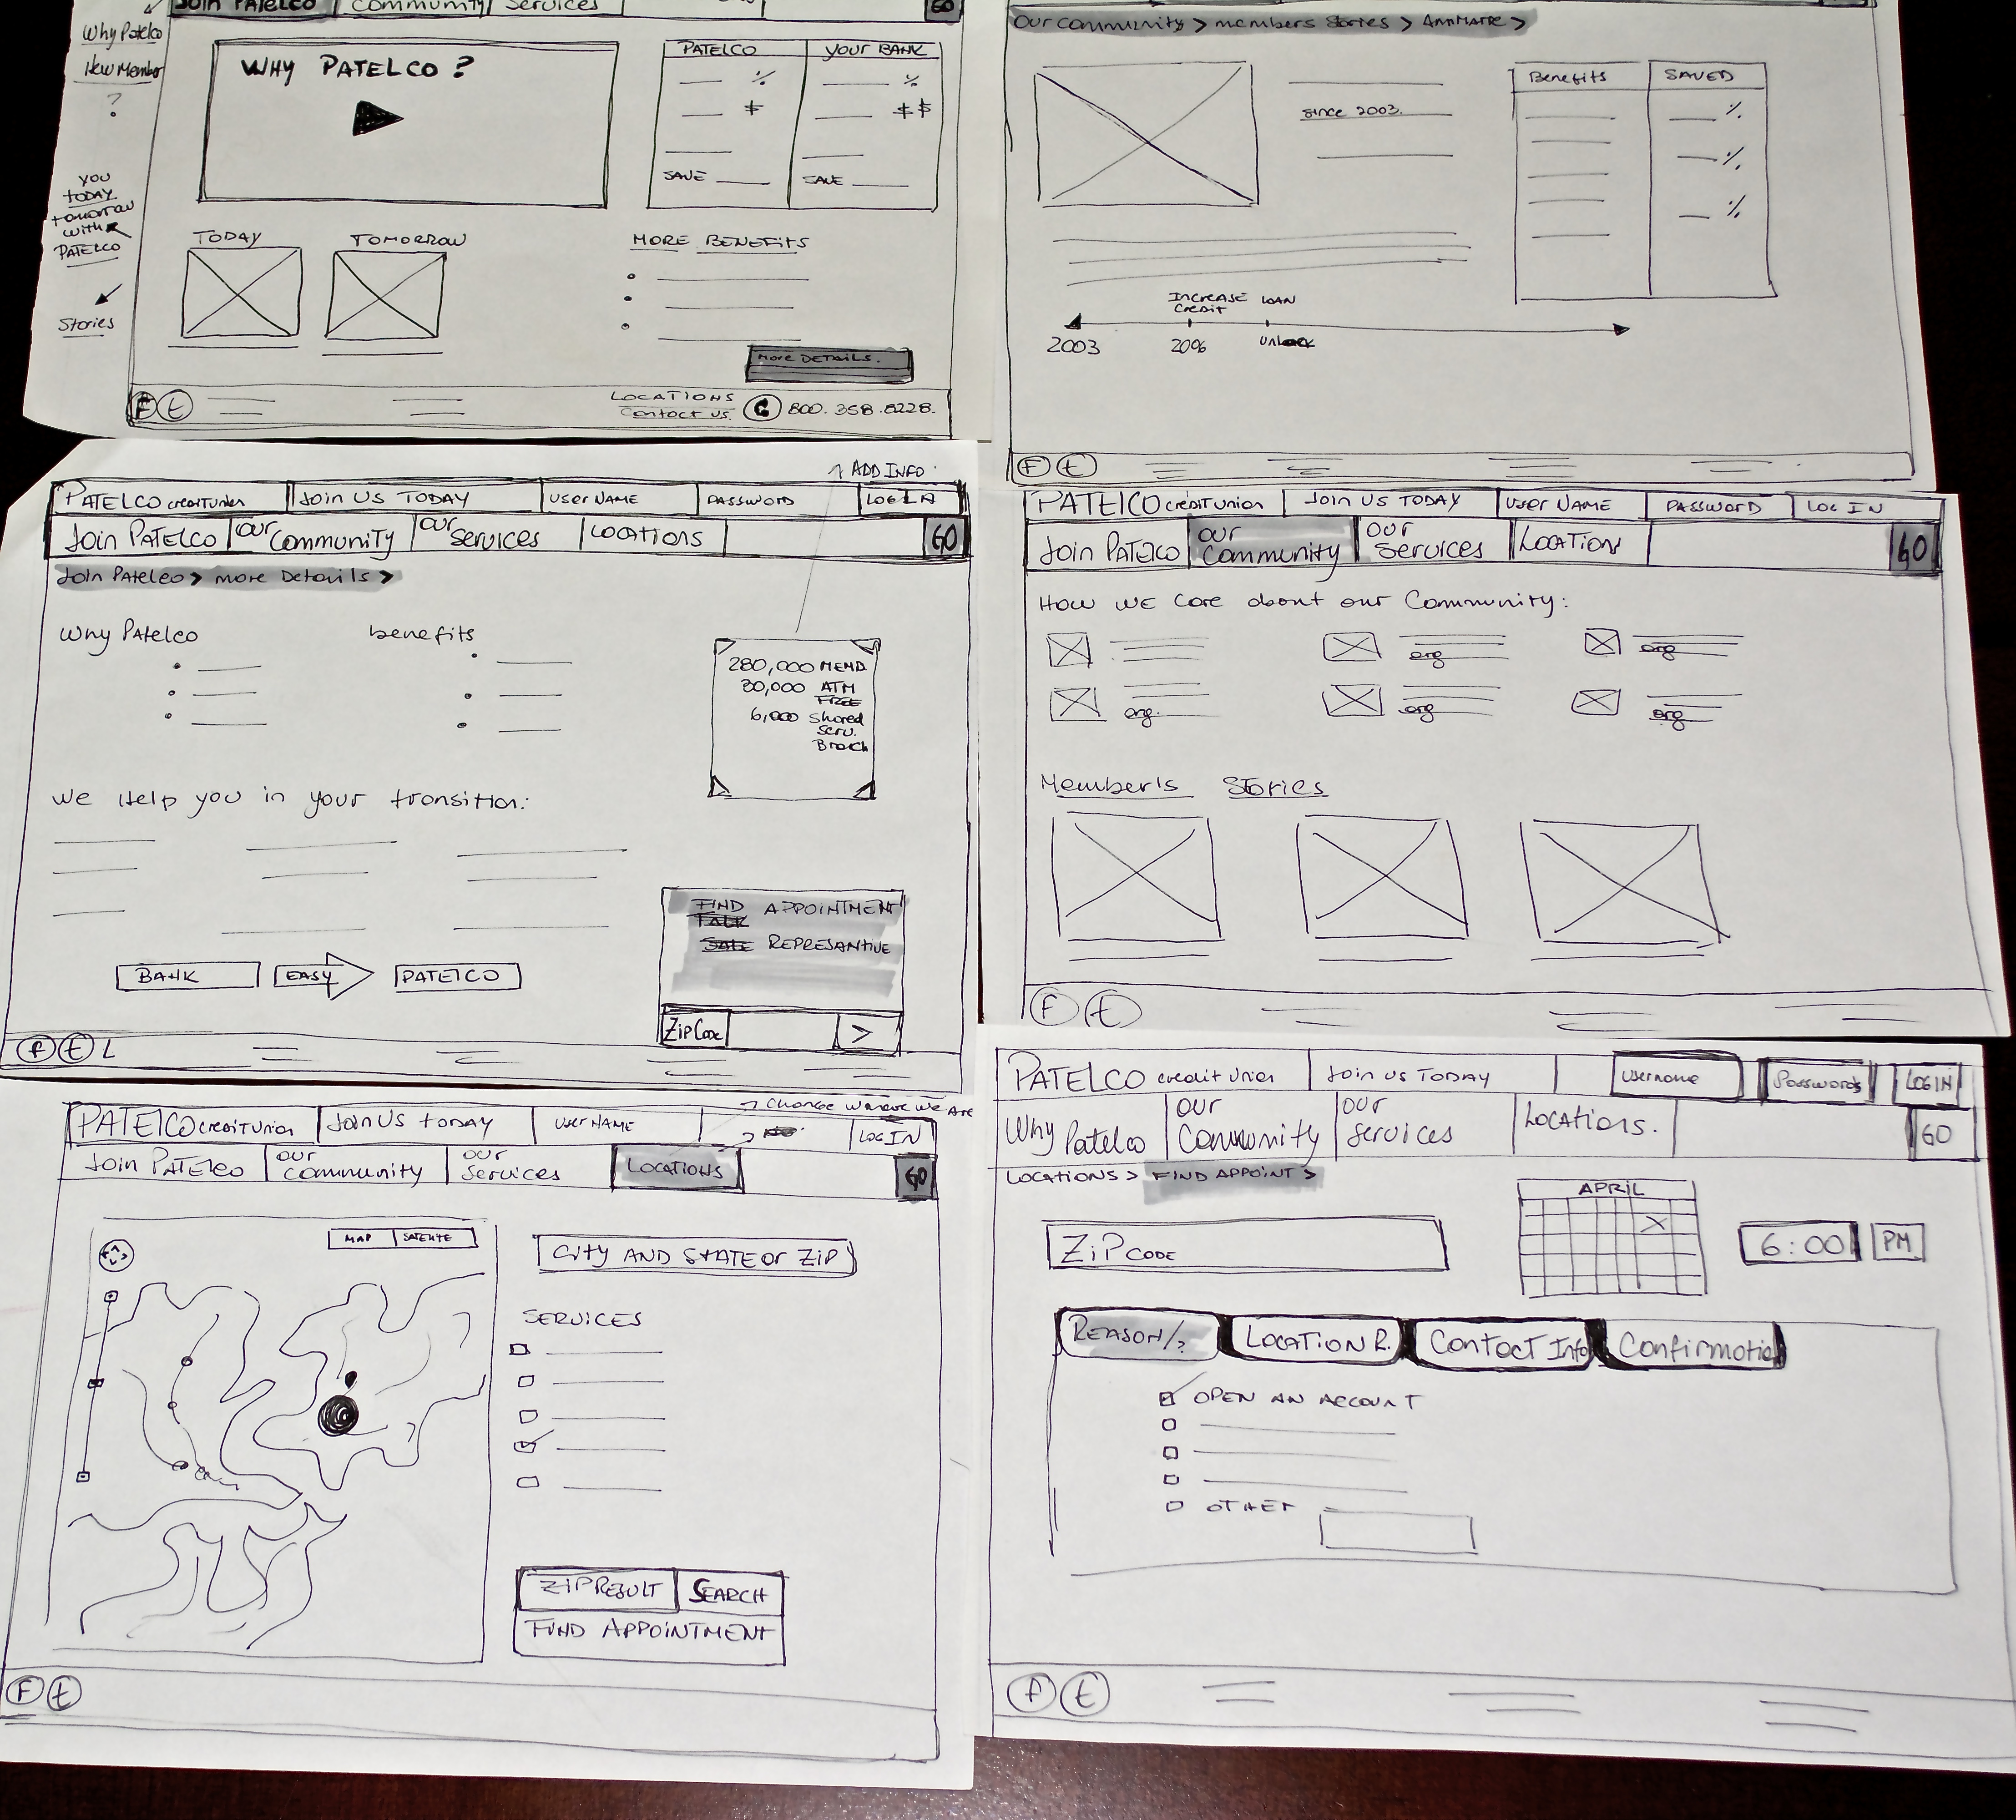 Join PATELCO
Community
Services
GO
Why Patelco
New Member
?
WHY PATELCO ?
PATELCO
YOUR BANK
%
%
$
$ $
SAVE
SAVE
YOU
TODAY
tomorrow
with
PATELCO
Stories
TODAY
TOMORROW
MORE BENEFITS
MORE DETAILS.
F t
LOCATIONS
Contact us.
800. 358 .8228.
Our Community > members Stories >
since 2003.
Benefits
SAVED
%
%
%
INCREASE
CREDIT
LOAN
2003
F t
ADD INFO
PATELCO credit Union
Join US TODAY
USER NAME
PASSWORD
LOG IN
Join PATELCO
OUR Community
OUR Services
LOCATIONS
GO
Join Patelco > more Details >
Why Patelco
benefits
280,000 MEMB.
30,000 ATM
FREE
6,000 Shared
Serv.
Branch
We Help you in your transition:
FIND APPOINTMENT
TALK
SALE REPRESANTIVE
BANK
EASY
PATELCO
Zip Code
>
f t L
PATELCO credit Union
Join US TODAY
USER NAME
PASSWORD
LOG IN
Join PATELCO
OUR Community
OUR Services
LOCATION
GO
HOW WE Care about our Community:
org
org
org.
org
org
Member's Stories
F t
CHANGE WHERE WE ARE
PATELCO credit Union
Join US today
USER NAME
LOG IN
Join PATELCO
OUR Community
OUR Services
LOCATIONS
GO
MAP
SATELITE
City AND STATE or Zip
SERVICES
ZIP RESULT
SEARCH
FIND APPOINTMENT
F t
PATELCO credit Union
Join us TODAY
Username
Passwords
LOGIN
Why Patelco
OUR Community
OUR Services
LOCATIONS.
GO
LOCATIONS > FIND APPOINT >
APRIL
X
ZiP CODE
6:00
PM
REASON/?
LOCATION R.
Contact Info
Confirmation
OPEN AN ACCOUNT
OTHER
f t